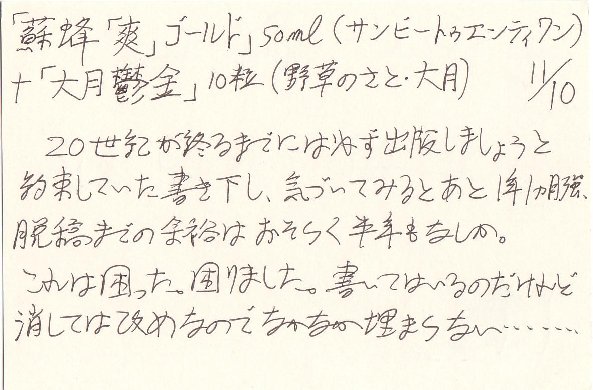 「蘇蜂「爽」ゴールド」50ml(サンビートゥエンティワン)
+「大月鬱金」10粒(野草のさと・大月) 11/10
20世紀が終るまでには必ず出版しましょうと
約束していた書き下し、気づいてみるとあと1年1ヵ月強、
脱稿までの余裕はおそらく半年もなしか。
これは困った。困りました。書いてはいるのだけれど
消しては改めなのでなかなか埋まらない………